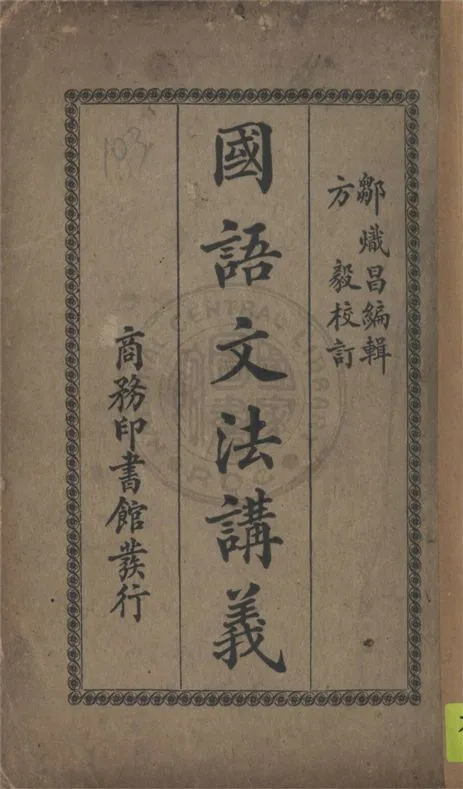 鄒熾昌編輯
方毅校訂
國語文法講義
商務印書館發行
103
NATIONAL CENTRAL LIBRARY
R·O·C